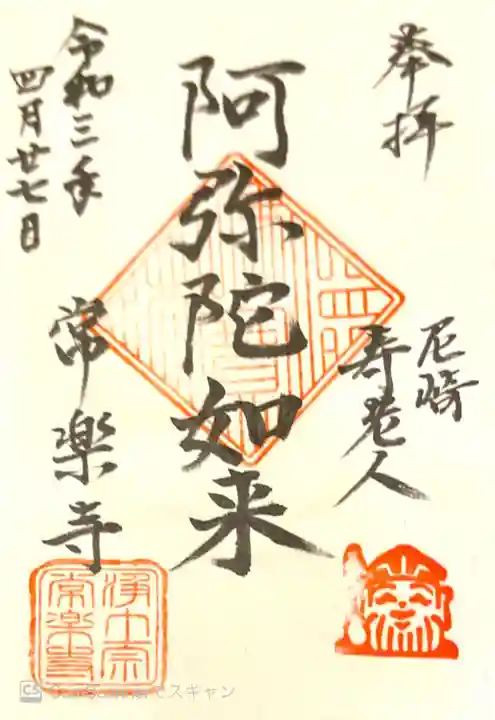 奉拝
尼崎
寿老人
阿弥陀如来
令和三年
四月廿七日
常楽寺
浄土宗
常楽寺
CS
でスキャン